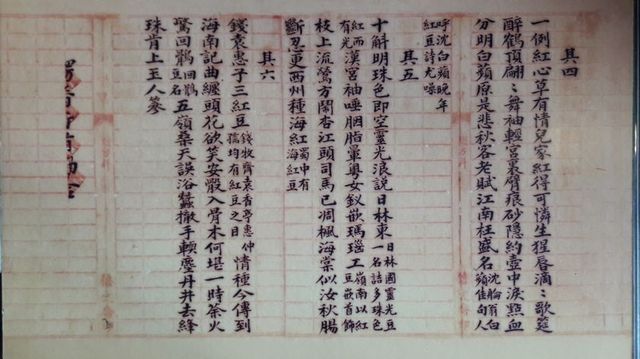 其四
一例紅心草有情兒家紅得可憐生猩唇滴〻歌筵
醉鶴頂翩〻舞袖輕宮裏臂痕砂隱約壺中淚點血
分明白蘋原是悲秋客老賦江南枉盛名沈腀翁白蘋佳句人
呼沈白蘋晚年紅豆詩尤噪
其五
十斛明珠色即空靈光浪說日林東日林國靈光豆一名詰多珠色
紅而有光漢宮袖唾胭脂暈粵女釵嵌瑪瑙工嶺南以紅豆嵌首飾
枝上流鶯方鬧杏江頭司馬已凋楓海棠似汝秋腸
斷忍更西州種海紅蜀中有海紅豆
其六
錢袁惠子三紅豆錢牧齋袁香亭惠仲孺均有紅豆之目情種今傳到
海南記曲纏頭花欲笑安骰入骨木何堪一時茶火
驚回鶻回鶻豆名五嶺桑天誤浴蠶撤手輭塵丹井去絳
珠肯上玉人簪